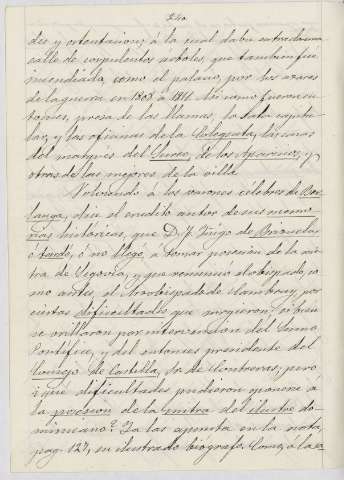 240
des y ostentacion; á la cual daba entrada una
calle de corpulentos árboles, que tambien fué
incendiada, como el palacio, por los azares
de la guerra en 1808 á 1814. Asi mismo fueron en-
tonces, presa de las llamas, la sala capitu-
lar, y las oficinas de la Colegiata, las casas
del marqués del          de los Aparicios, y
otras de las mejores de la villa.
Volviendo á los varones célebres de Ber-
langa, dice el erudito autor de sus memo-
rias históricas, que D. F. Iñigo de Brizuelas
ó tardó, ó no llegó á tomar posesion de la mi-
tra de Segovia, y que renunció el obispado, co-
mo antes, el Arzobispado de Cambray, por
ciertas dificultades que surgieron; si bien
se orillaron por intervencion del Sumo
Pontífice, y del entonces presidente del
Consejo de Castilla, Sr. de Contreras; pero
¿qué dificultades, pudieron oponerse á
la posesion de la mitra del ilustre do-
minicano? Ya las apunta en la nota,
pag. 127, su ilustrado biógrafo. Como, á la